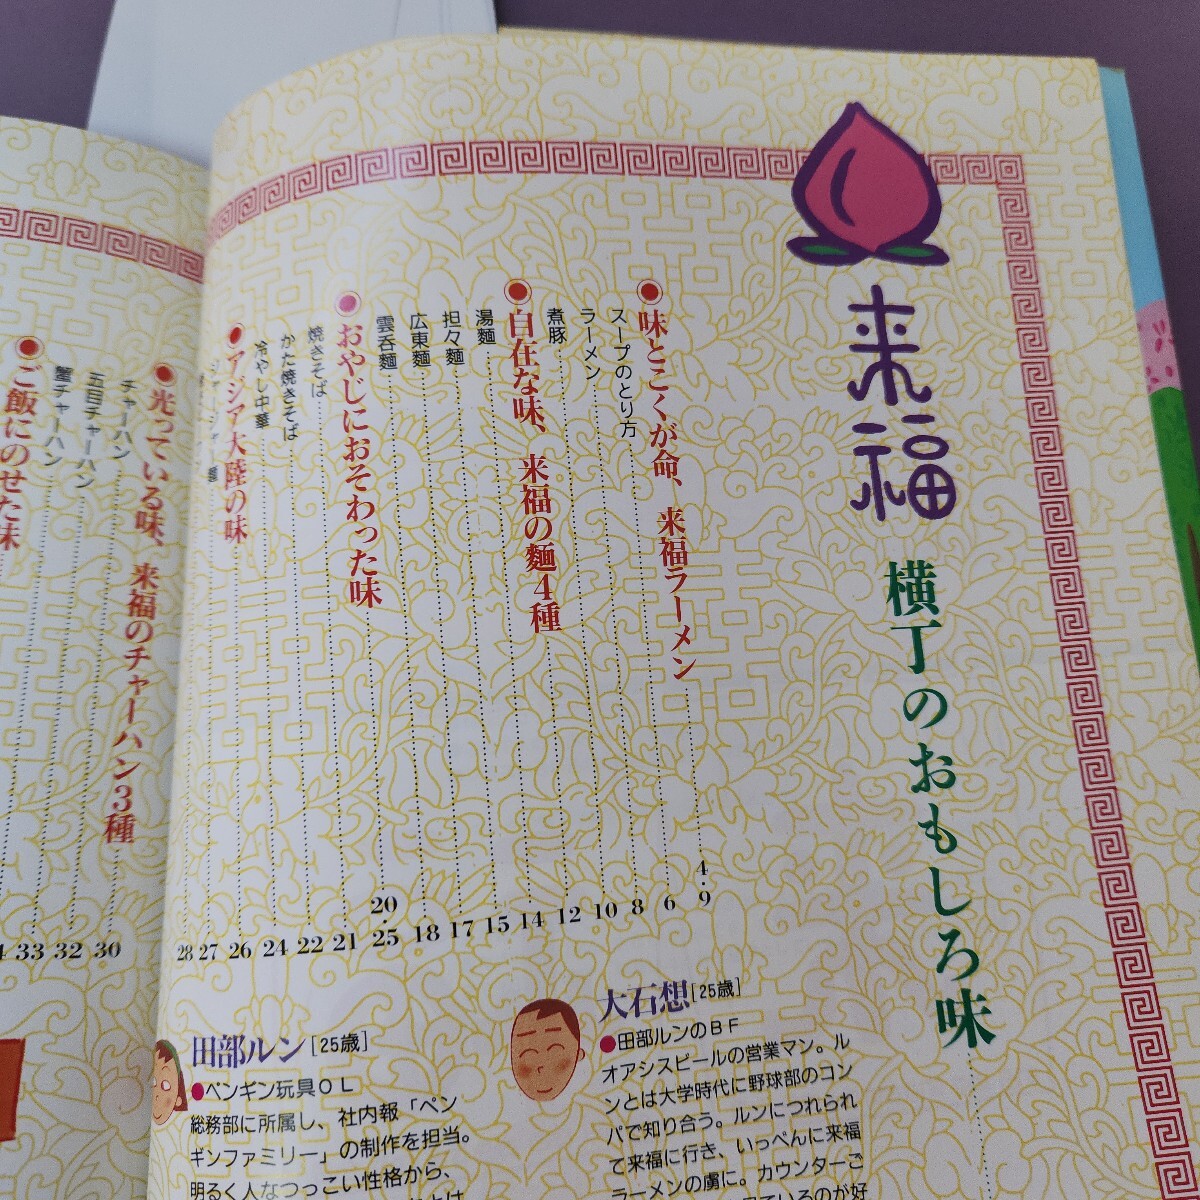 来福
横丁のおもしろ味
●味とこくが命、来福ラーメン……4・9
スープのとり方……6
ラーメン……8
煮豚……10
●自在な味、来福の麺4種……12
湯麺……14
担々麺……15
広東麺……17
雲呑麺……18
●おやじにおそわった味……20・25
焼きそば……21
かた焼きそば……22
冷やし中華……24
●アジア大陸の味……26
ジャージャー麺……27
28
●光っている味、来福のチャーハン3種
チャーハン……30
五目チャーハン……32
蟹チャーハン……33
●ご飯にのせた味
大石想[25歳]
●田部ルンのBF
オアシスビールの営業マン。ル
ンとは大学時代に野球部のコン
パで知り合う。ルンにつれられ
て来福に行き、いっぺんに来福
ラーメンの虜に。カウンターご
田部ルン[25歳]
●ペンギン玩具OL
総務部に所属し、社内報「ペン
ギンファミリー」の制作を担当。
明るく人なつっこい性格から、